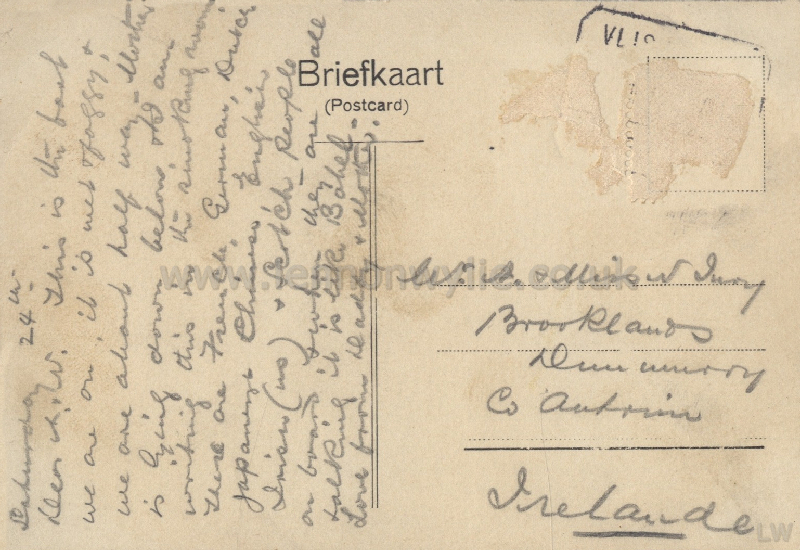 Saturday 24th
Dear A & W. This is the boat
we are on. it is wet & foggy, &
we are about half way - Mother
is lying down below and I am
writing this in the smoking room
There are French German, Dutch
Japanese Chinese English
Irish (us) & Scotch people all
on board & when they are
talking it is like Babel.
Love from Daddy & Mother.
Briefkaart
(Postcard)
VLIS
A. & Miss W Jury
Brooklands
Dunmurry
Co Antrim
Irelande
www.lennonwylie.co.uk
LW